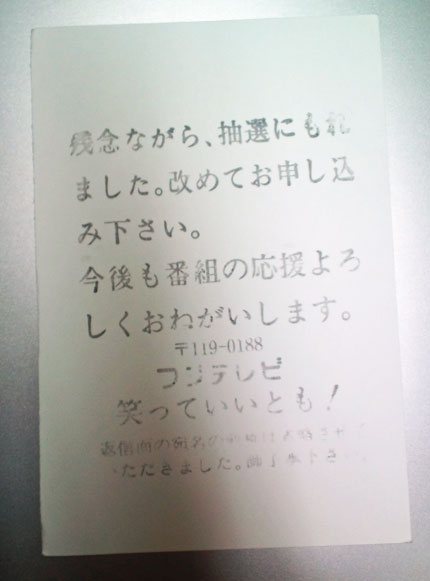 残念ながら、抽選にもれ
ました。改めてお申し込
み下さい。
今後も番組の応援よろ
しくおねがいします。
〒119-0188
フジテレビ
笑っていいとも!
返信面の宛名の
いただきました。御了承下さい